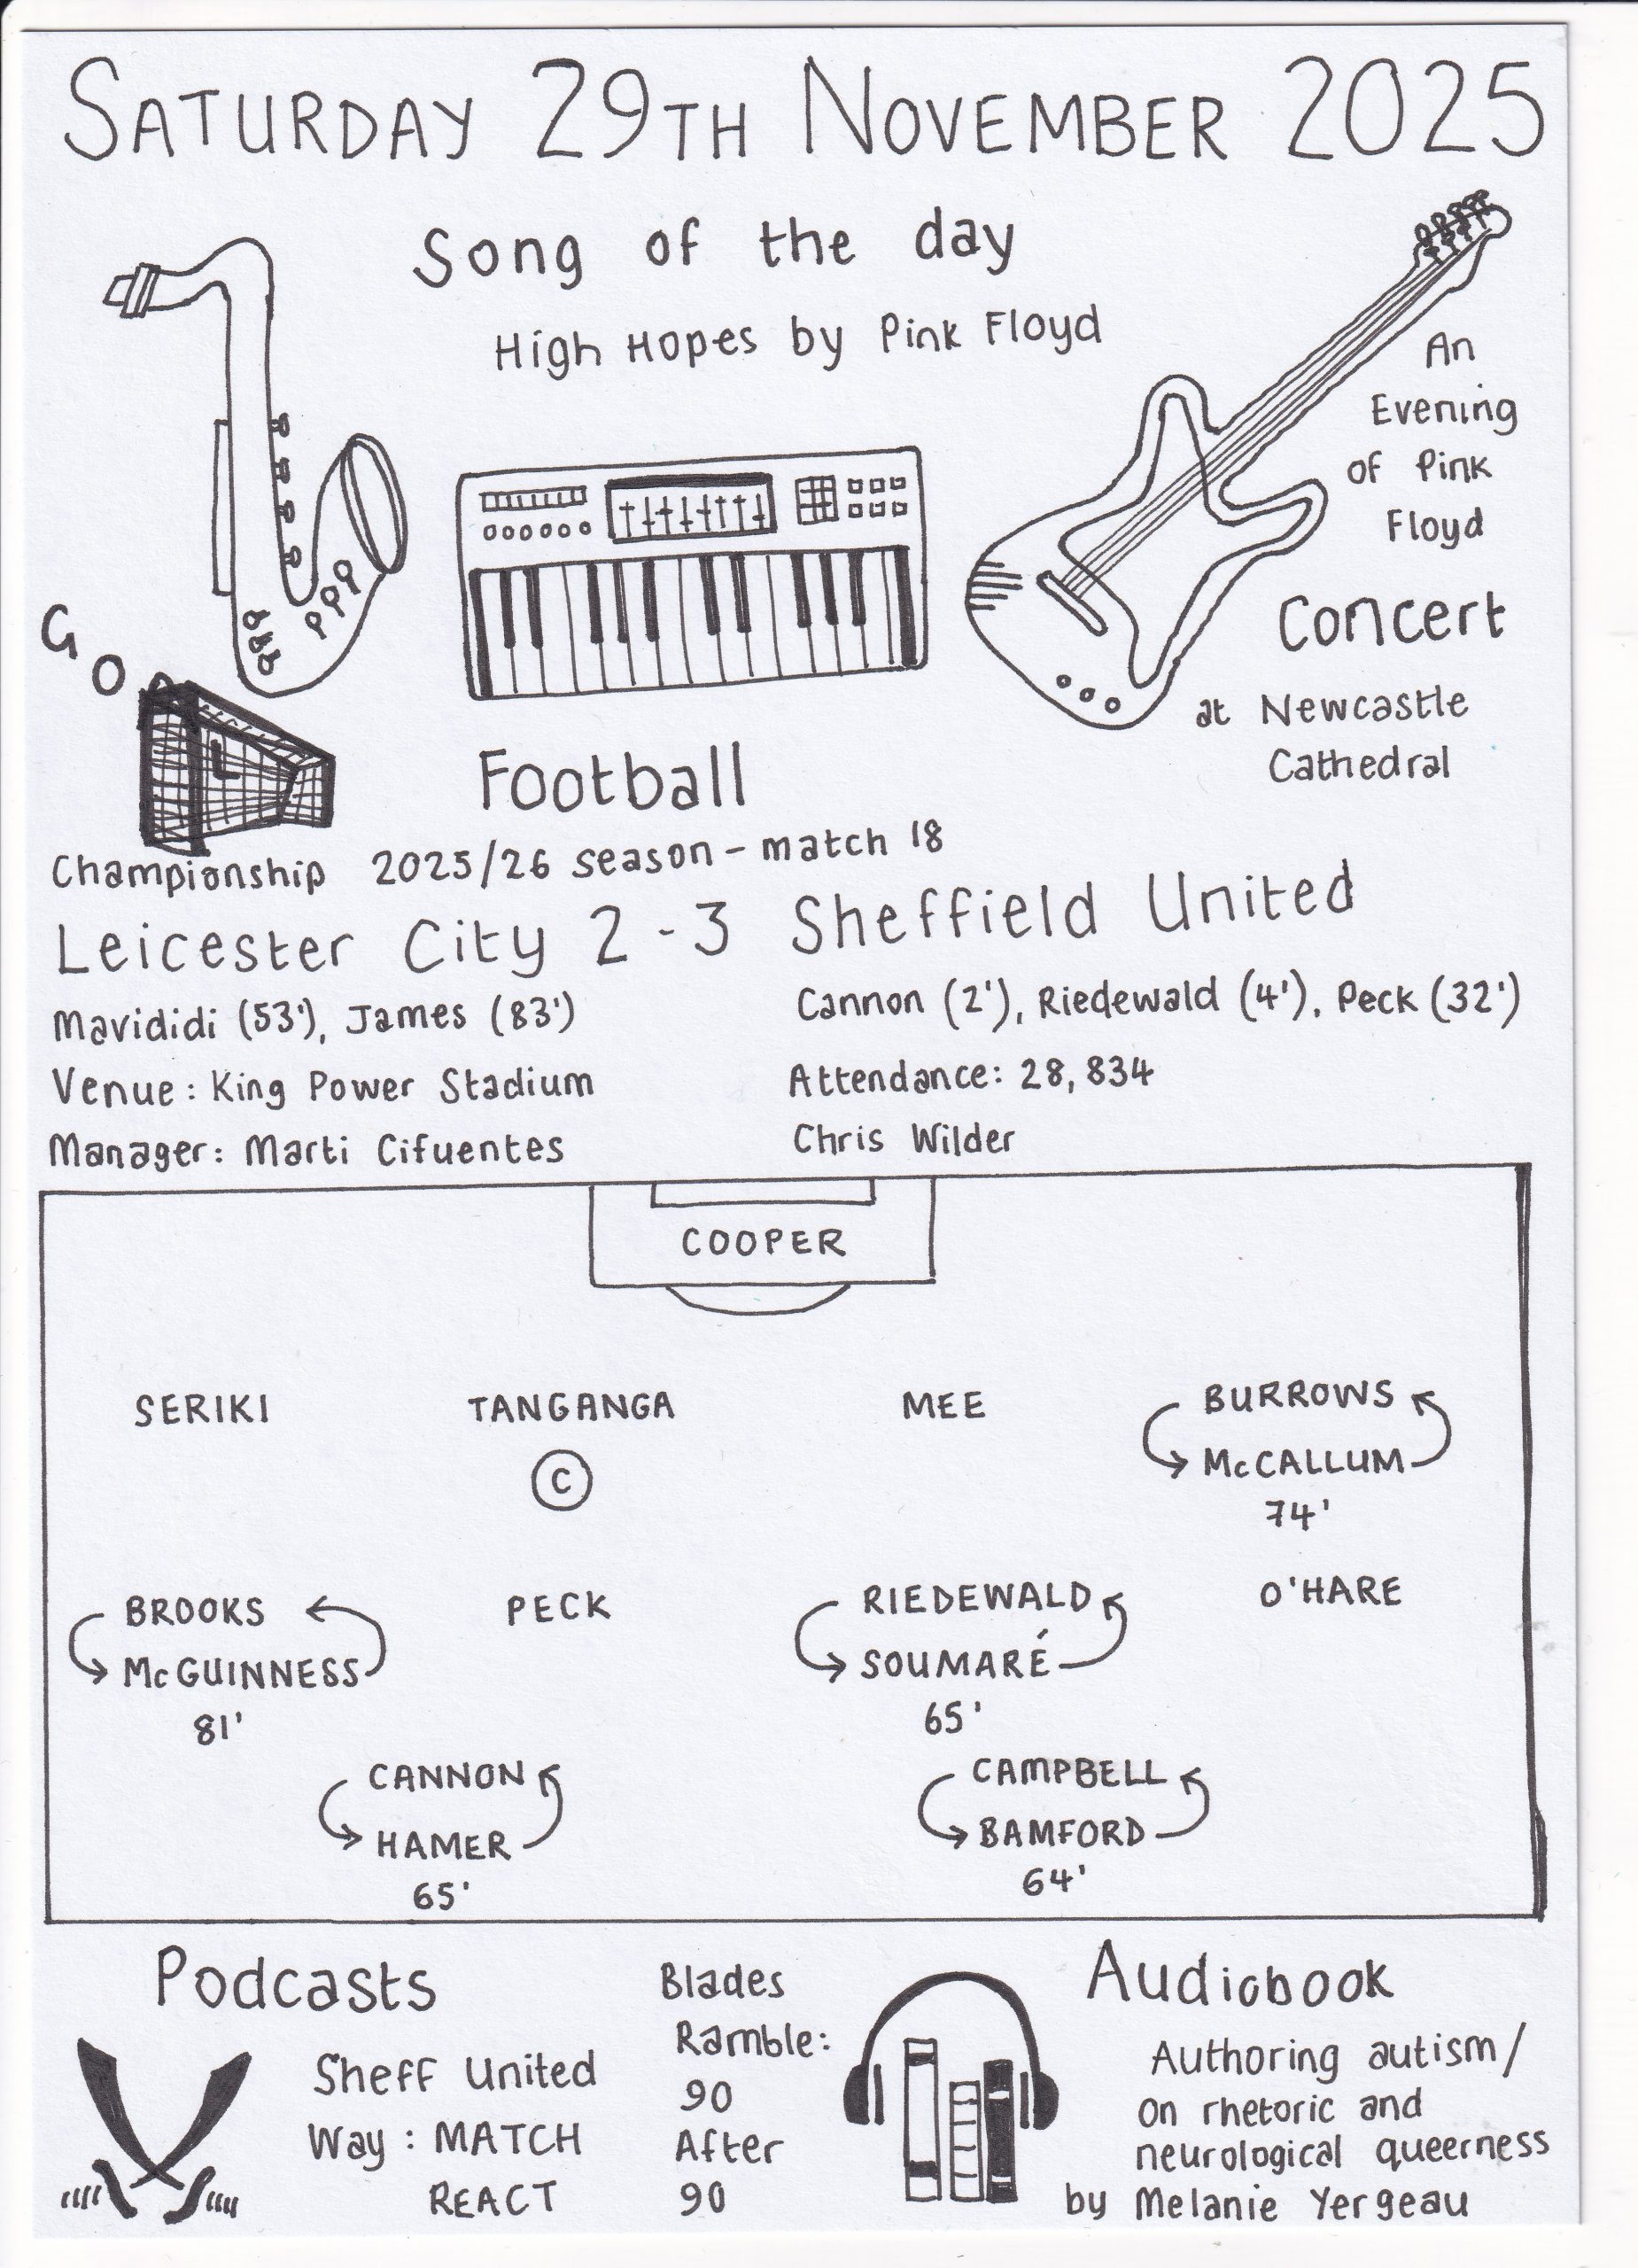 SATURDAY 29TH NOVEMBER 2025
Song of the day
High Hopes by Pink Floyd
An
Evening
of Pink
Floyd
Concert
at Newcastle
Cathedral
G
O
A
L
Football
Championship 2025/26 season - match 18
Leicester City 2-3 Sheffield United
Mavididi (53'), James (83')
Cannon (2'), Riedewald (4'), Peck (32')
Venue: King Power Stadium
Attendance: 28,834
Manager: Marti Cifuentes
Chris Wilder
COOPER
SERIKI
TANGANGA
C
MEE
BURROWS
McCALLUM
74'
BROOKS
McGUINNESS
81'
PECK
RIEDEWALD
SOUMARÉ
65'
O'HARE
CANNON
HAMER
65'
CAMPBELL
BAMFORD
64'
Podcasts
Sheff United
Way: MATCH
REACT
Blades
Ramble:
90
After
90
Audiobook
Authoring autism/
on rhetoric and
neurological queerness
by Melanie Yergeau